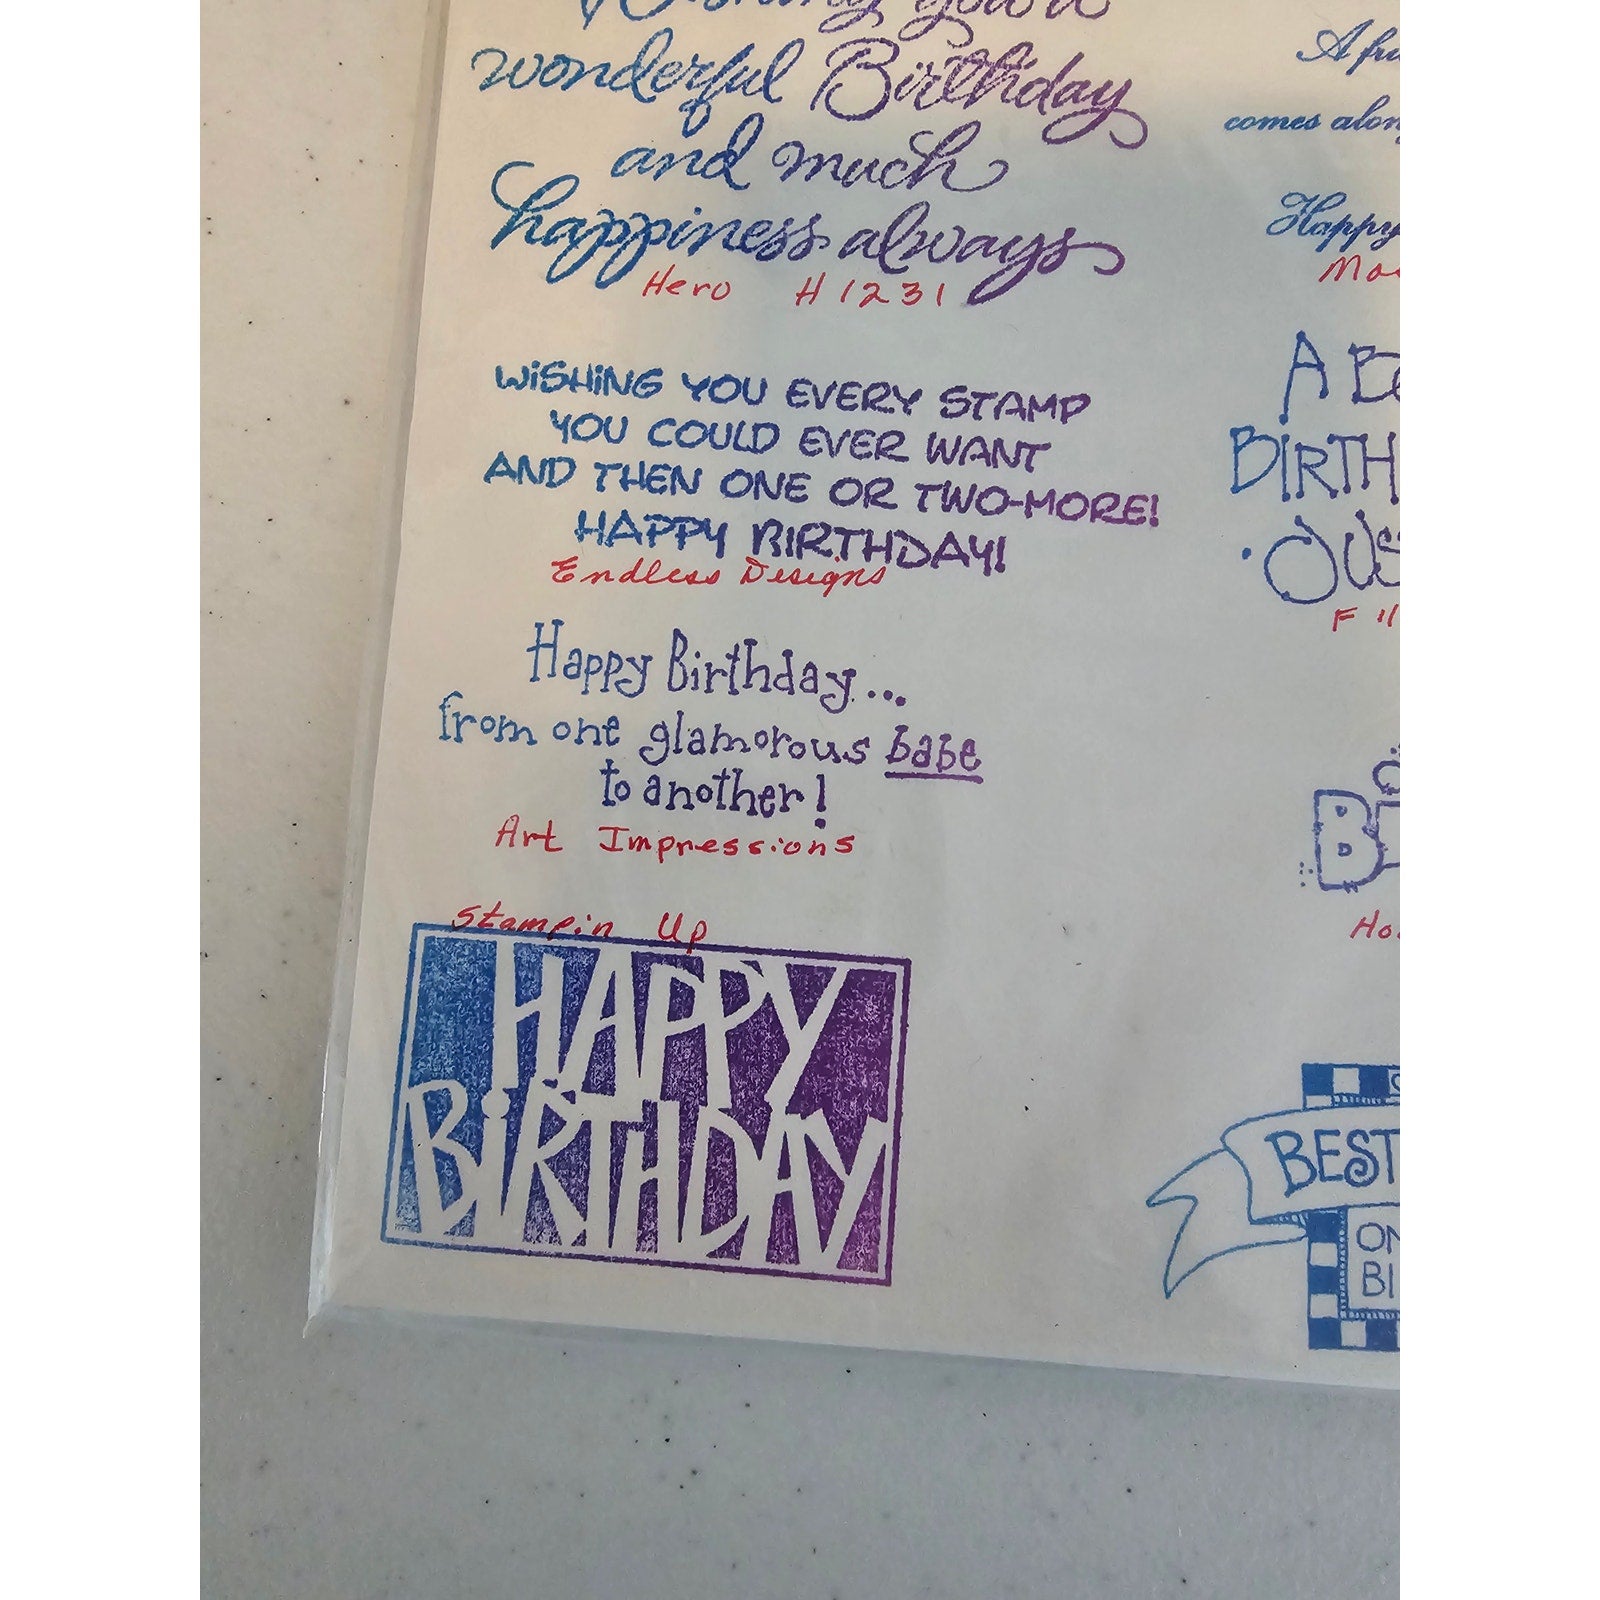 wonderful Birthday
and much
happiness always
Hero H1231
WISHING YOU EVERY STAMP
YOU COULD EVER WANT
AND THEN ONE OR TWO-MORE!
HAPPY BIRTHDAY!
Endless Designs
Happy Birthday...
from one glamorous babe
to another!
Art Impressions
Stampin Up
HAPPY
BIRTHDAY
A
comes
Happy
A
BIRTH
F 11
BEST